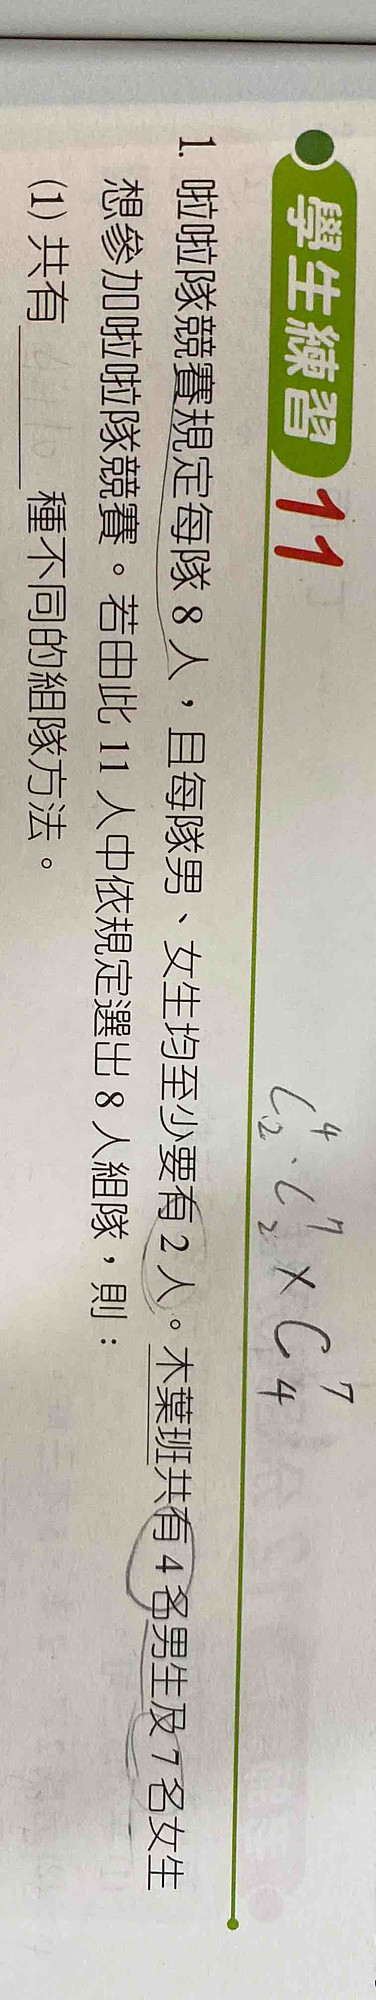 學生練習 11
C⁴₂ · C⁷₂ × C⁷₄
1. 啦啦隊競賽規定每隊 8 人，且每隊男、女生均至少要有 2 人。木葉班共有 4 名男生及 7 名女生
想參加啦啦隊競賽。若由此 11 人中依規定選出 8 人組隊，則：
(1) 共有______種不同的組隊方法。